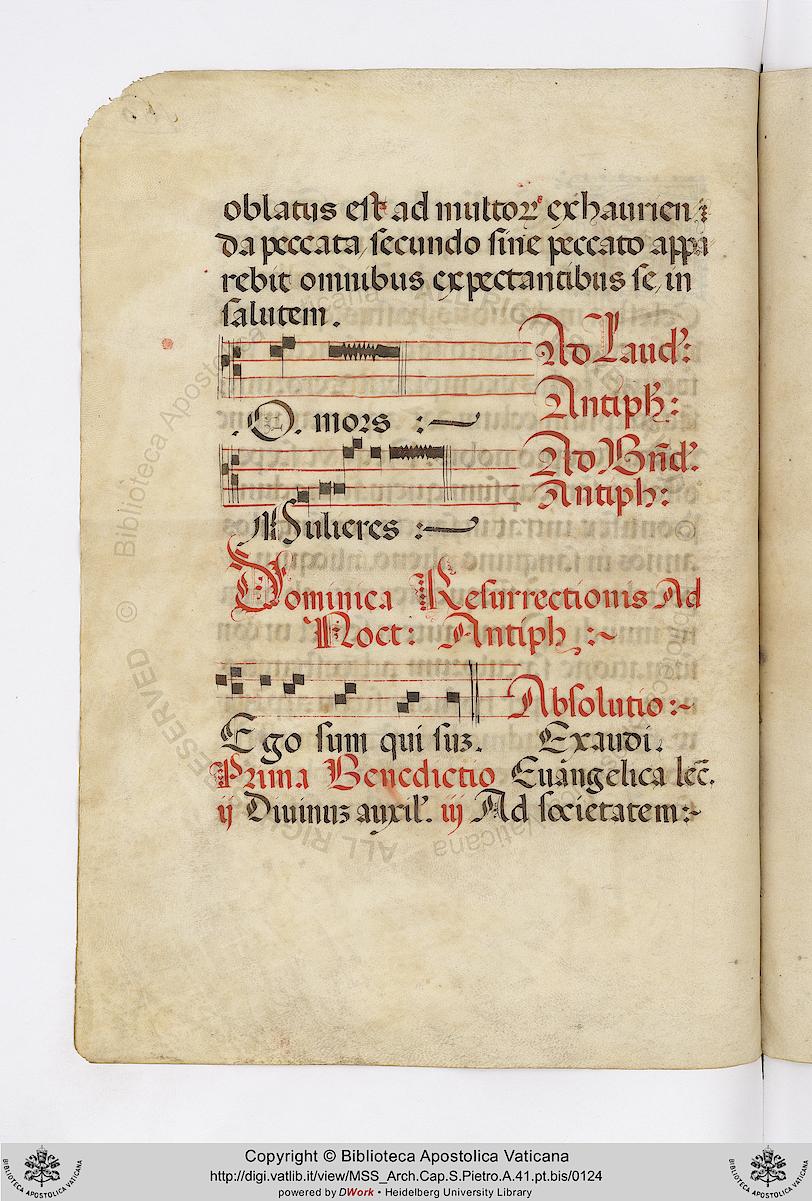 oblatus est ad multoꝝ exhaurien
da peccata, secundo sine peccato appa
rebit omnibus expectantibus se, in
salutem.
Ad Laud:
Antiph:
.O. mors :~
Ad Bñd.
Antiph:
Mulieres :~
Dominica Resurrectionis Ad
Noct: Antiph :~
Absolutio:~
Ego sum qui suꝫ. Exaudi.
Prima Benedictio Euangelica lec̄.
ij Diuinuꝫ auxil. iij Ad societatem:~
© Biblioteca Apostolica Vaticana ALL RIGHTS RESERVED
Copyright © Biblioteca Apostolica Vaticana
http://digi.vatlib.it/view/MSS_Arch.Cap.S.Pietro.A.41.pt.bis/0124
powered by DWork • Heidelberg University Library
BIBLIOTECA APOSTOLICA VATICANA
BIBLIOTECA APOSTOLICA VATICANA